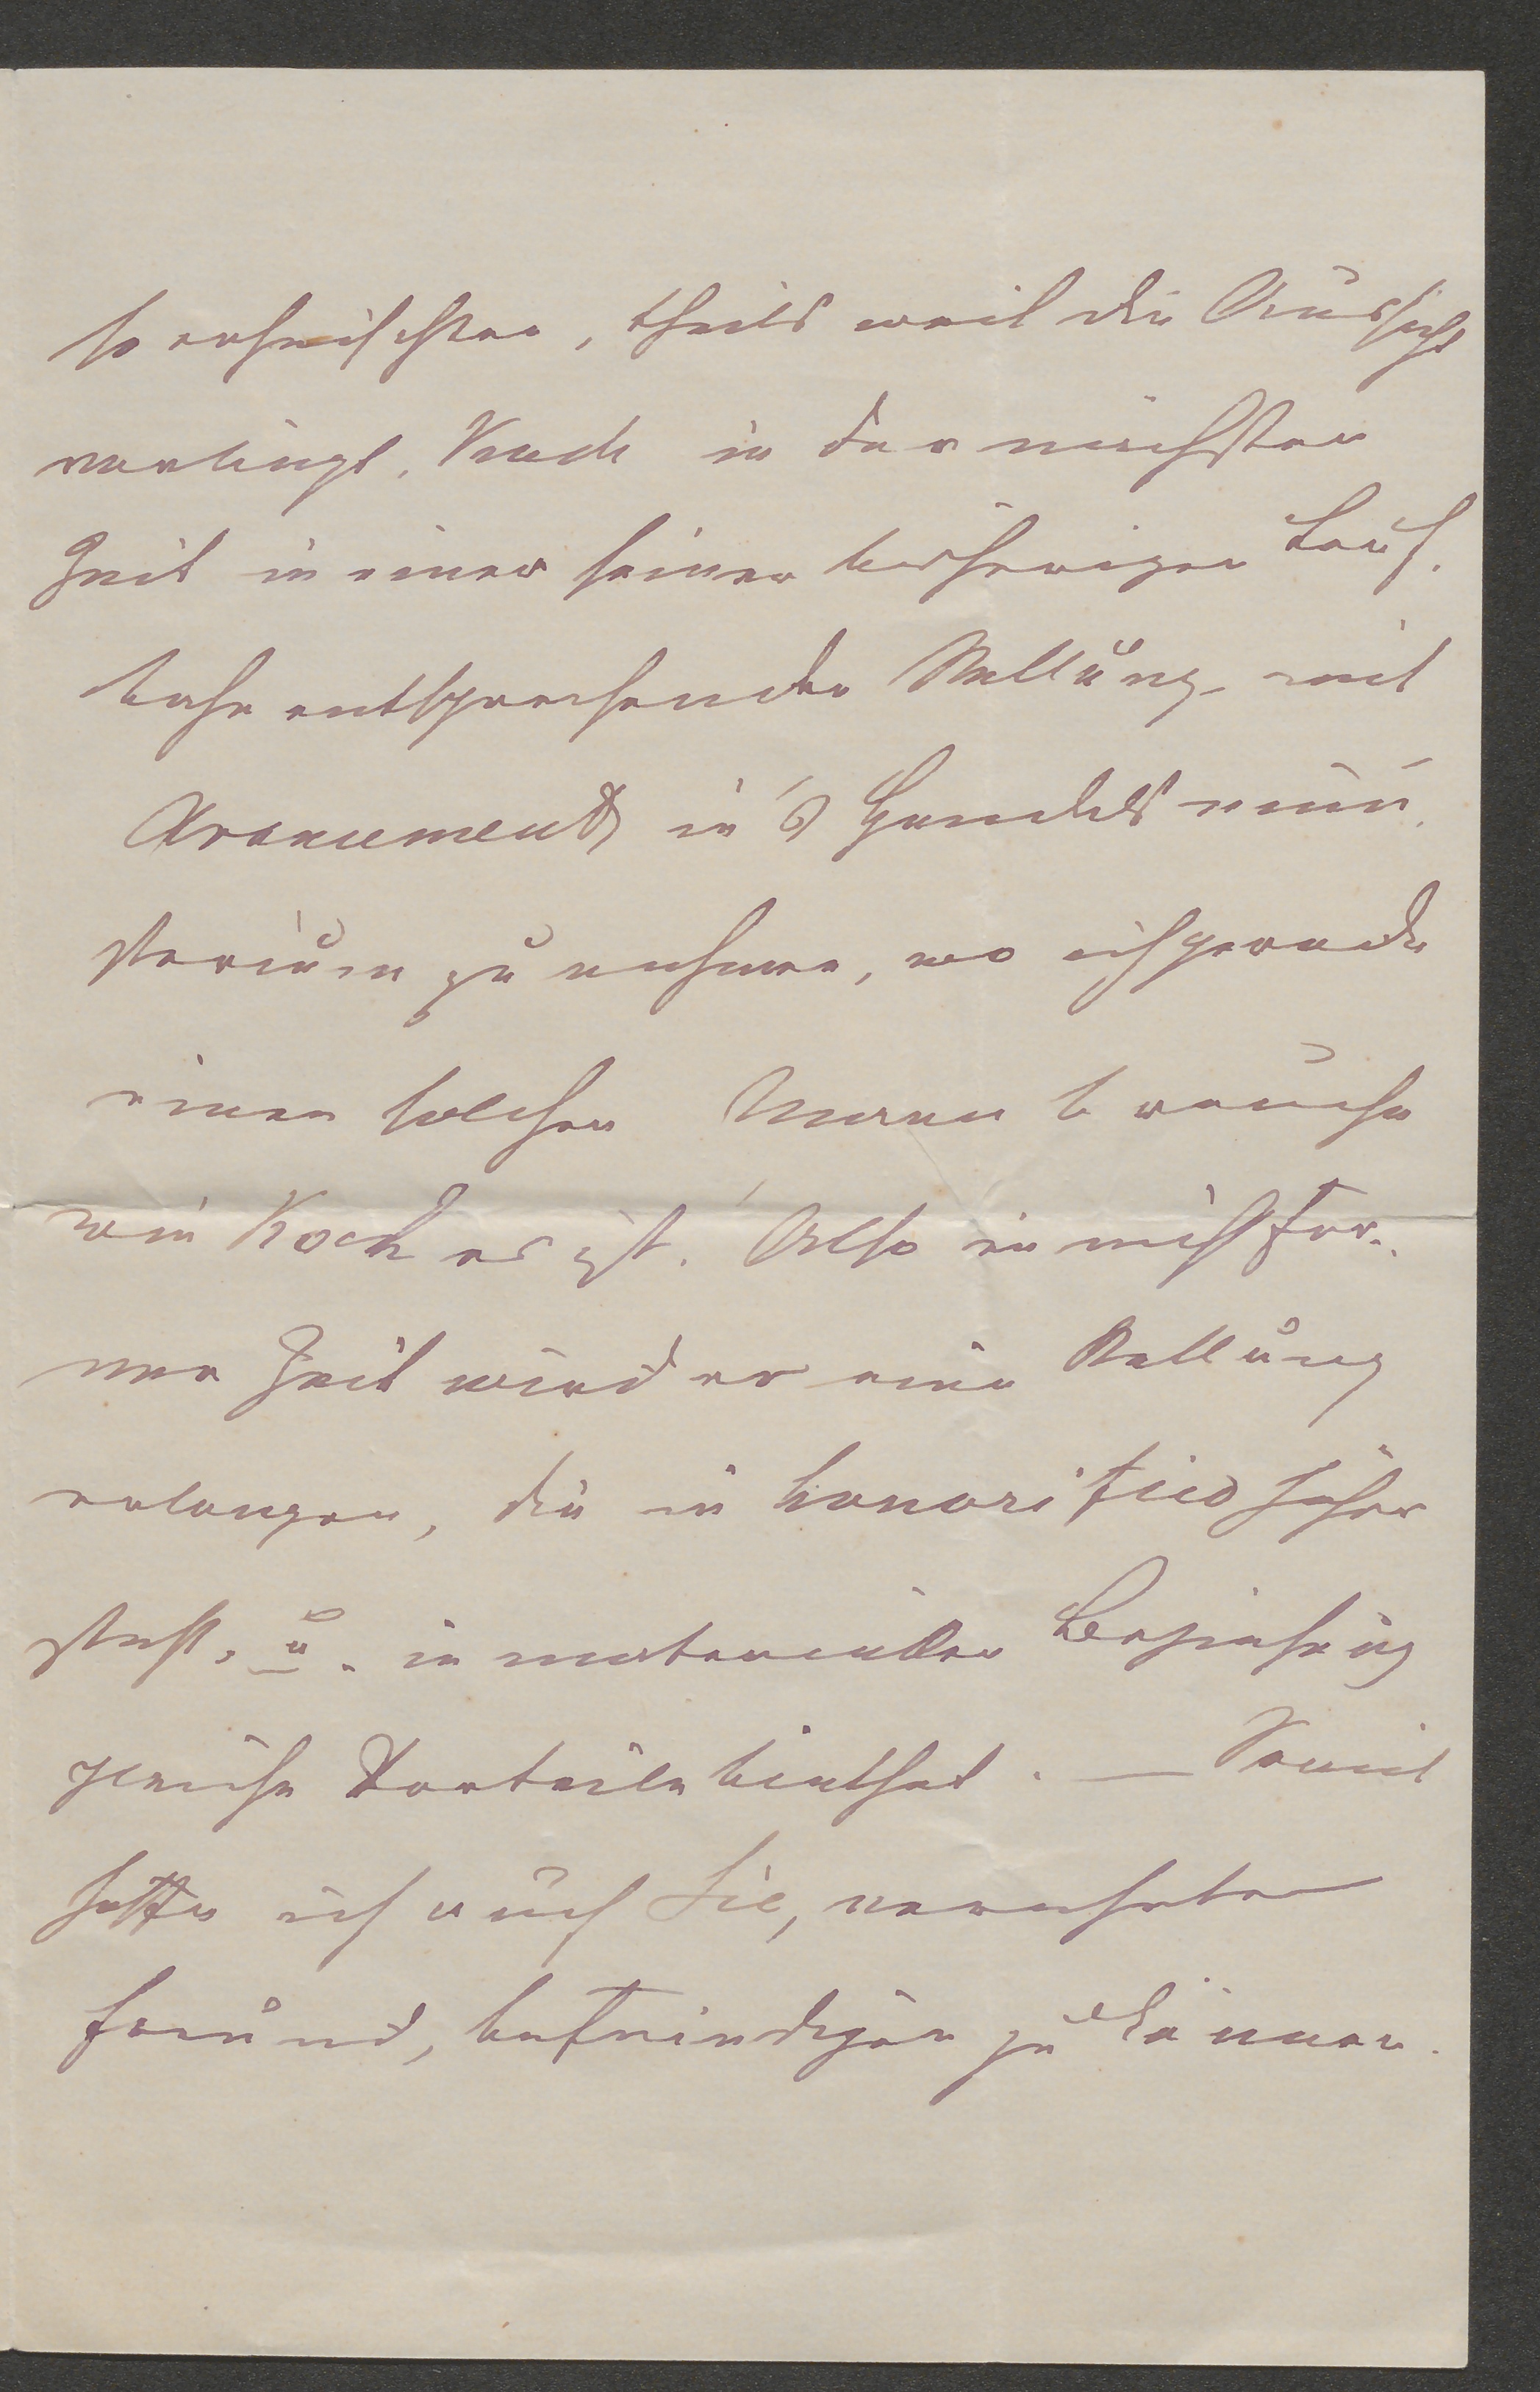 so erheischten, theils weil die Aussicht
vorliegt, Koch in der nächsten
Zeit in einer seiner bisherigen Lauf-
bahn entsprechenden Stellung mit
Avancement in's Handelsmini-
sterium zu nehmen, wo ich gerade
einen solchen Mann brauche
wie Koch es ist. Also in nicht fer-
ner Zeit wird er eine Stellung
erlangen, die in honorifico höher
steht, u. in materieller Beziehung
gleiche Vorteile biethet. — Somit
hoffe ich auch Sie, verehrter
Freund, befriedigen zu können.